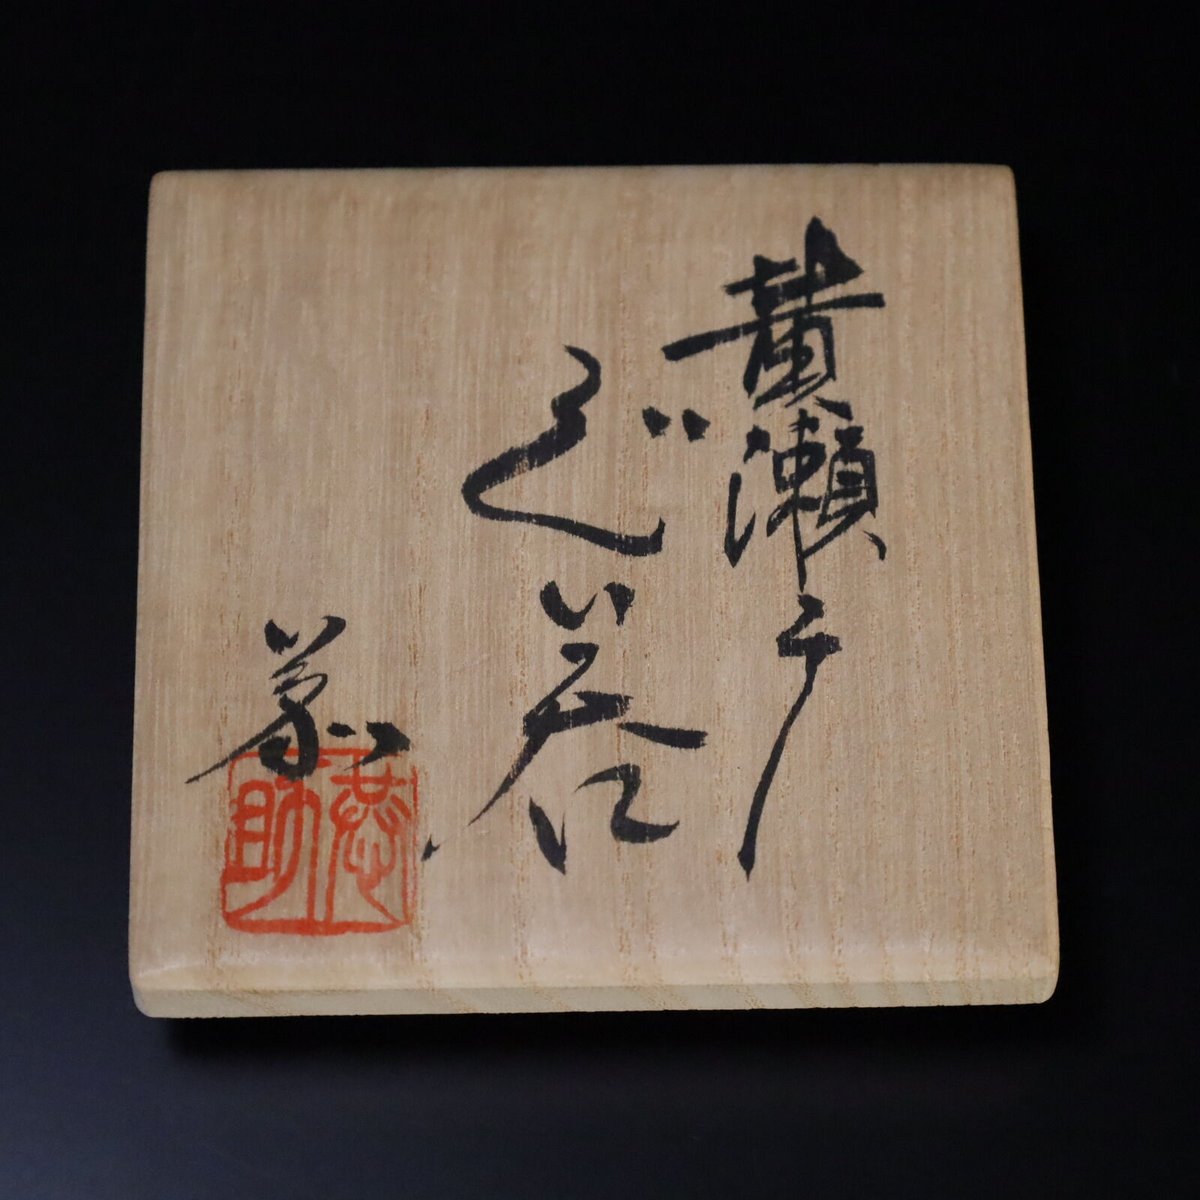 黄瀬戸
ぐい呑